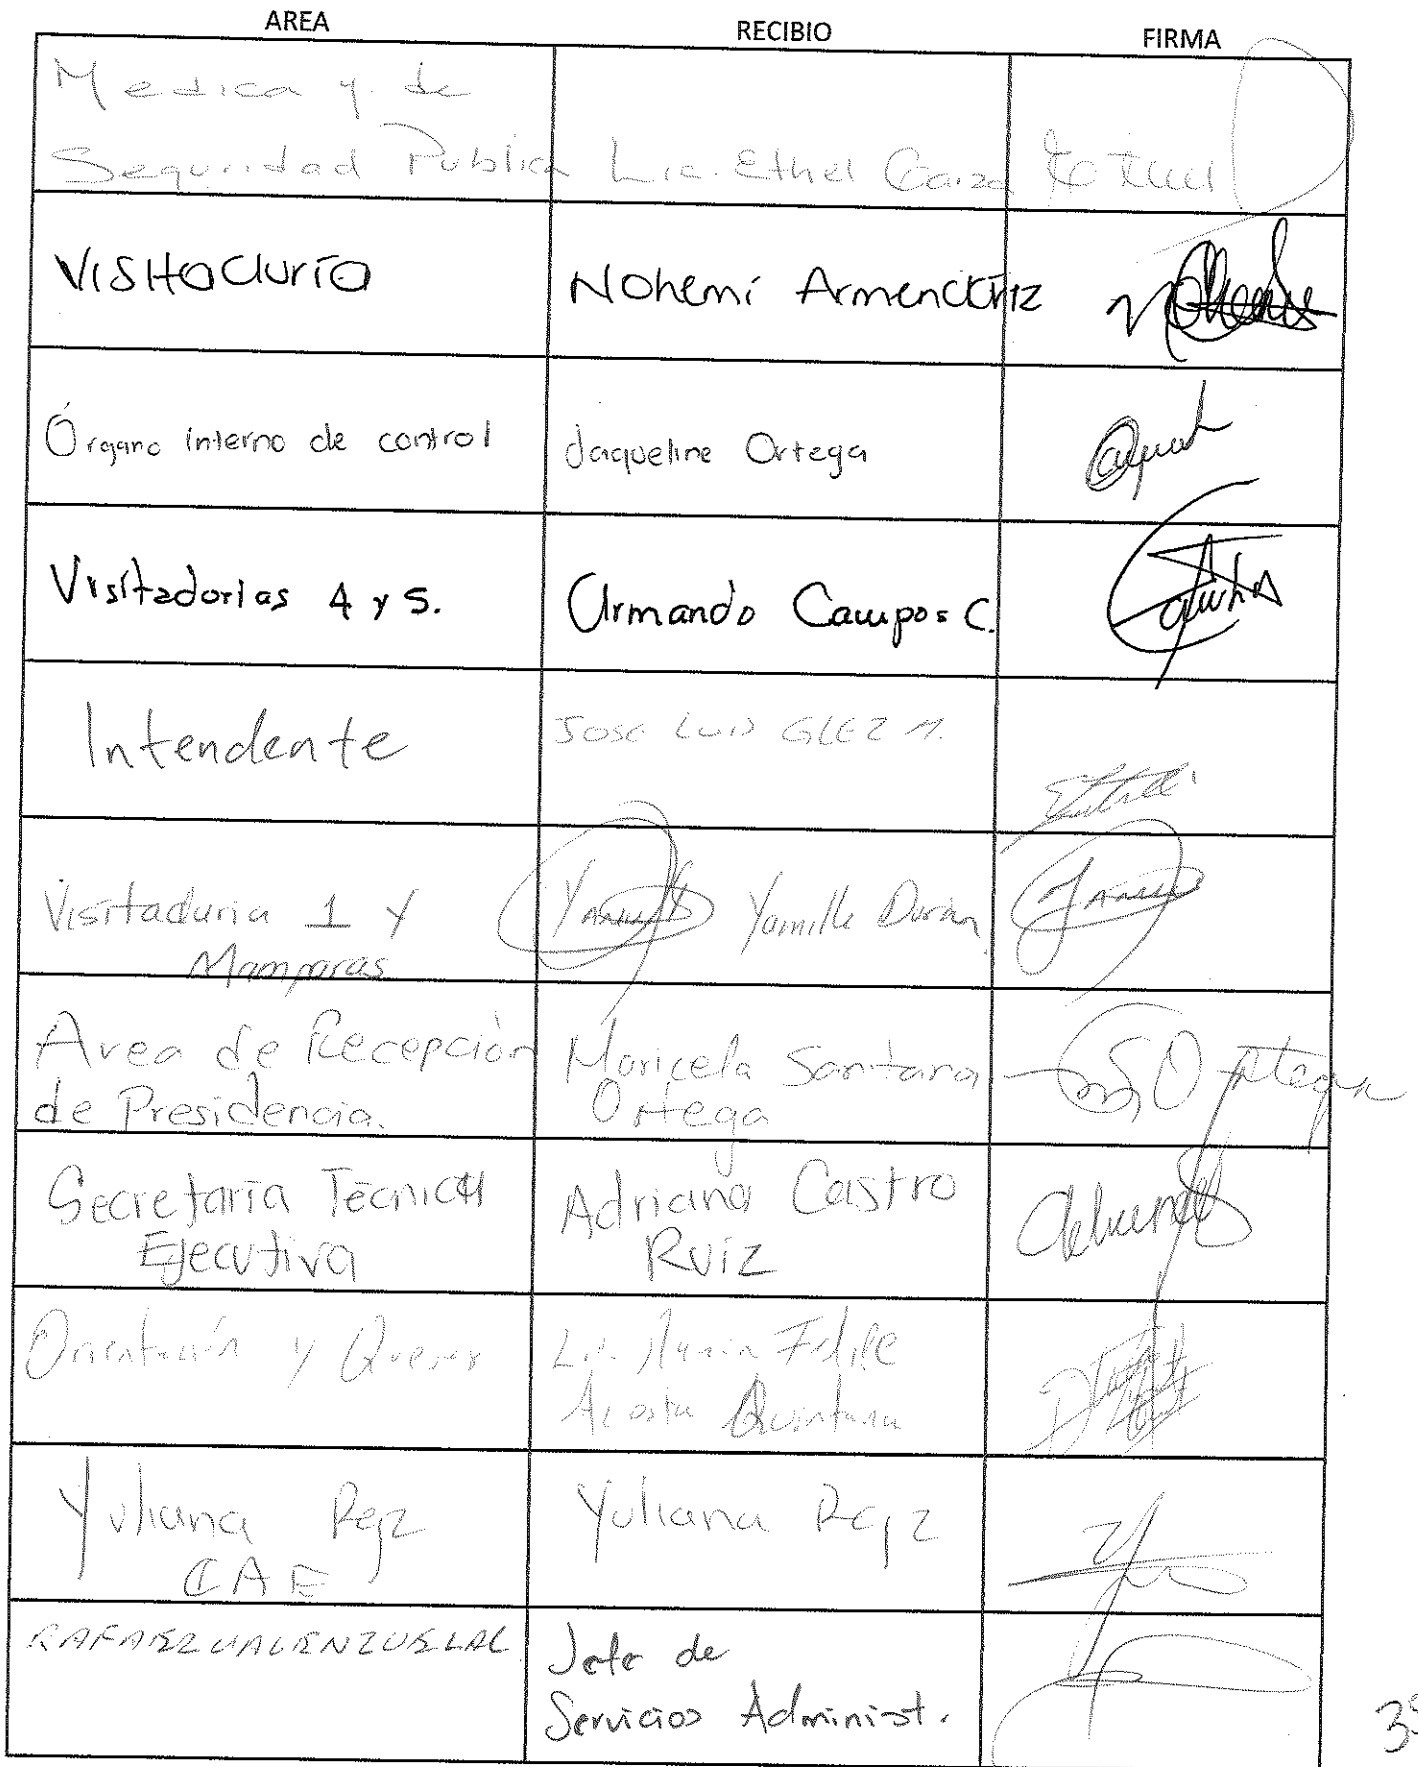 AREA RECIBIO FIRMA
Medica y de
Seguridad Publica Lic. Ethel Garza
Visitaduría Nohemí Armendáriz
Órgano interno de control Jaqueline Ortega
Visitadorías 4 y 5. Armando Campos C.
Intendente JOSE LUIS GLEZ M.
Visitaduria 1 y Yamille Durán
Mamparas
Area de Recepción Maricela Santana Ortega
de Presidencia. Ortega
Secretaría Técnica Adriana Castro
Ejecutiva Ruiz
Orientación y Quejas Lic. Felipe
Acosta Quintana
Yuliana Rgz Yuliana Rgz
CAE
RAFAEL VALENZUELA C Jefe de
Servicios Administ.